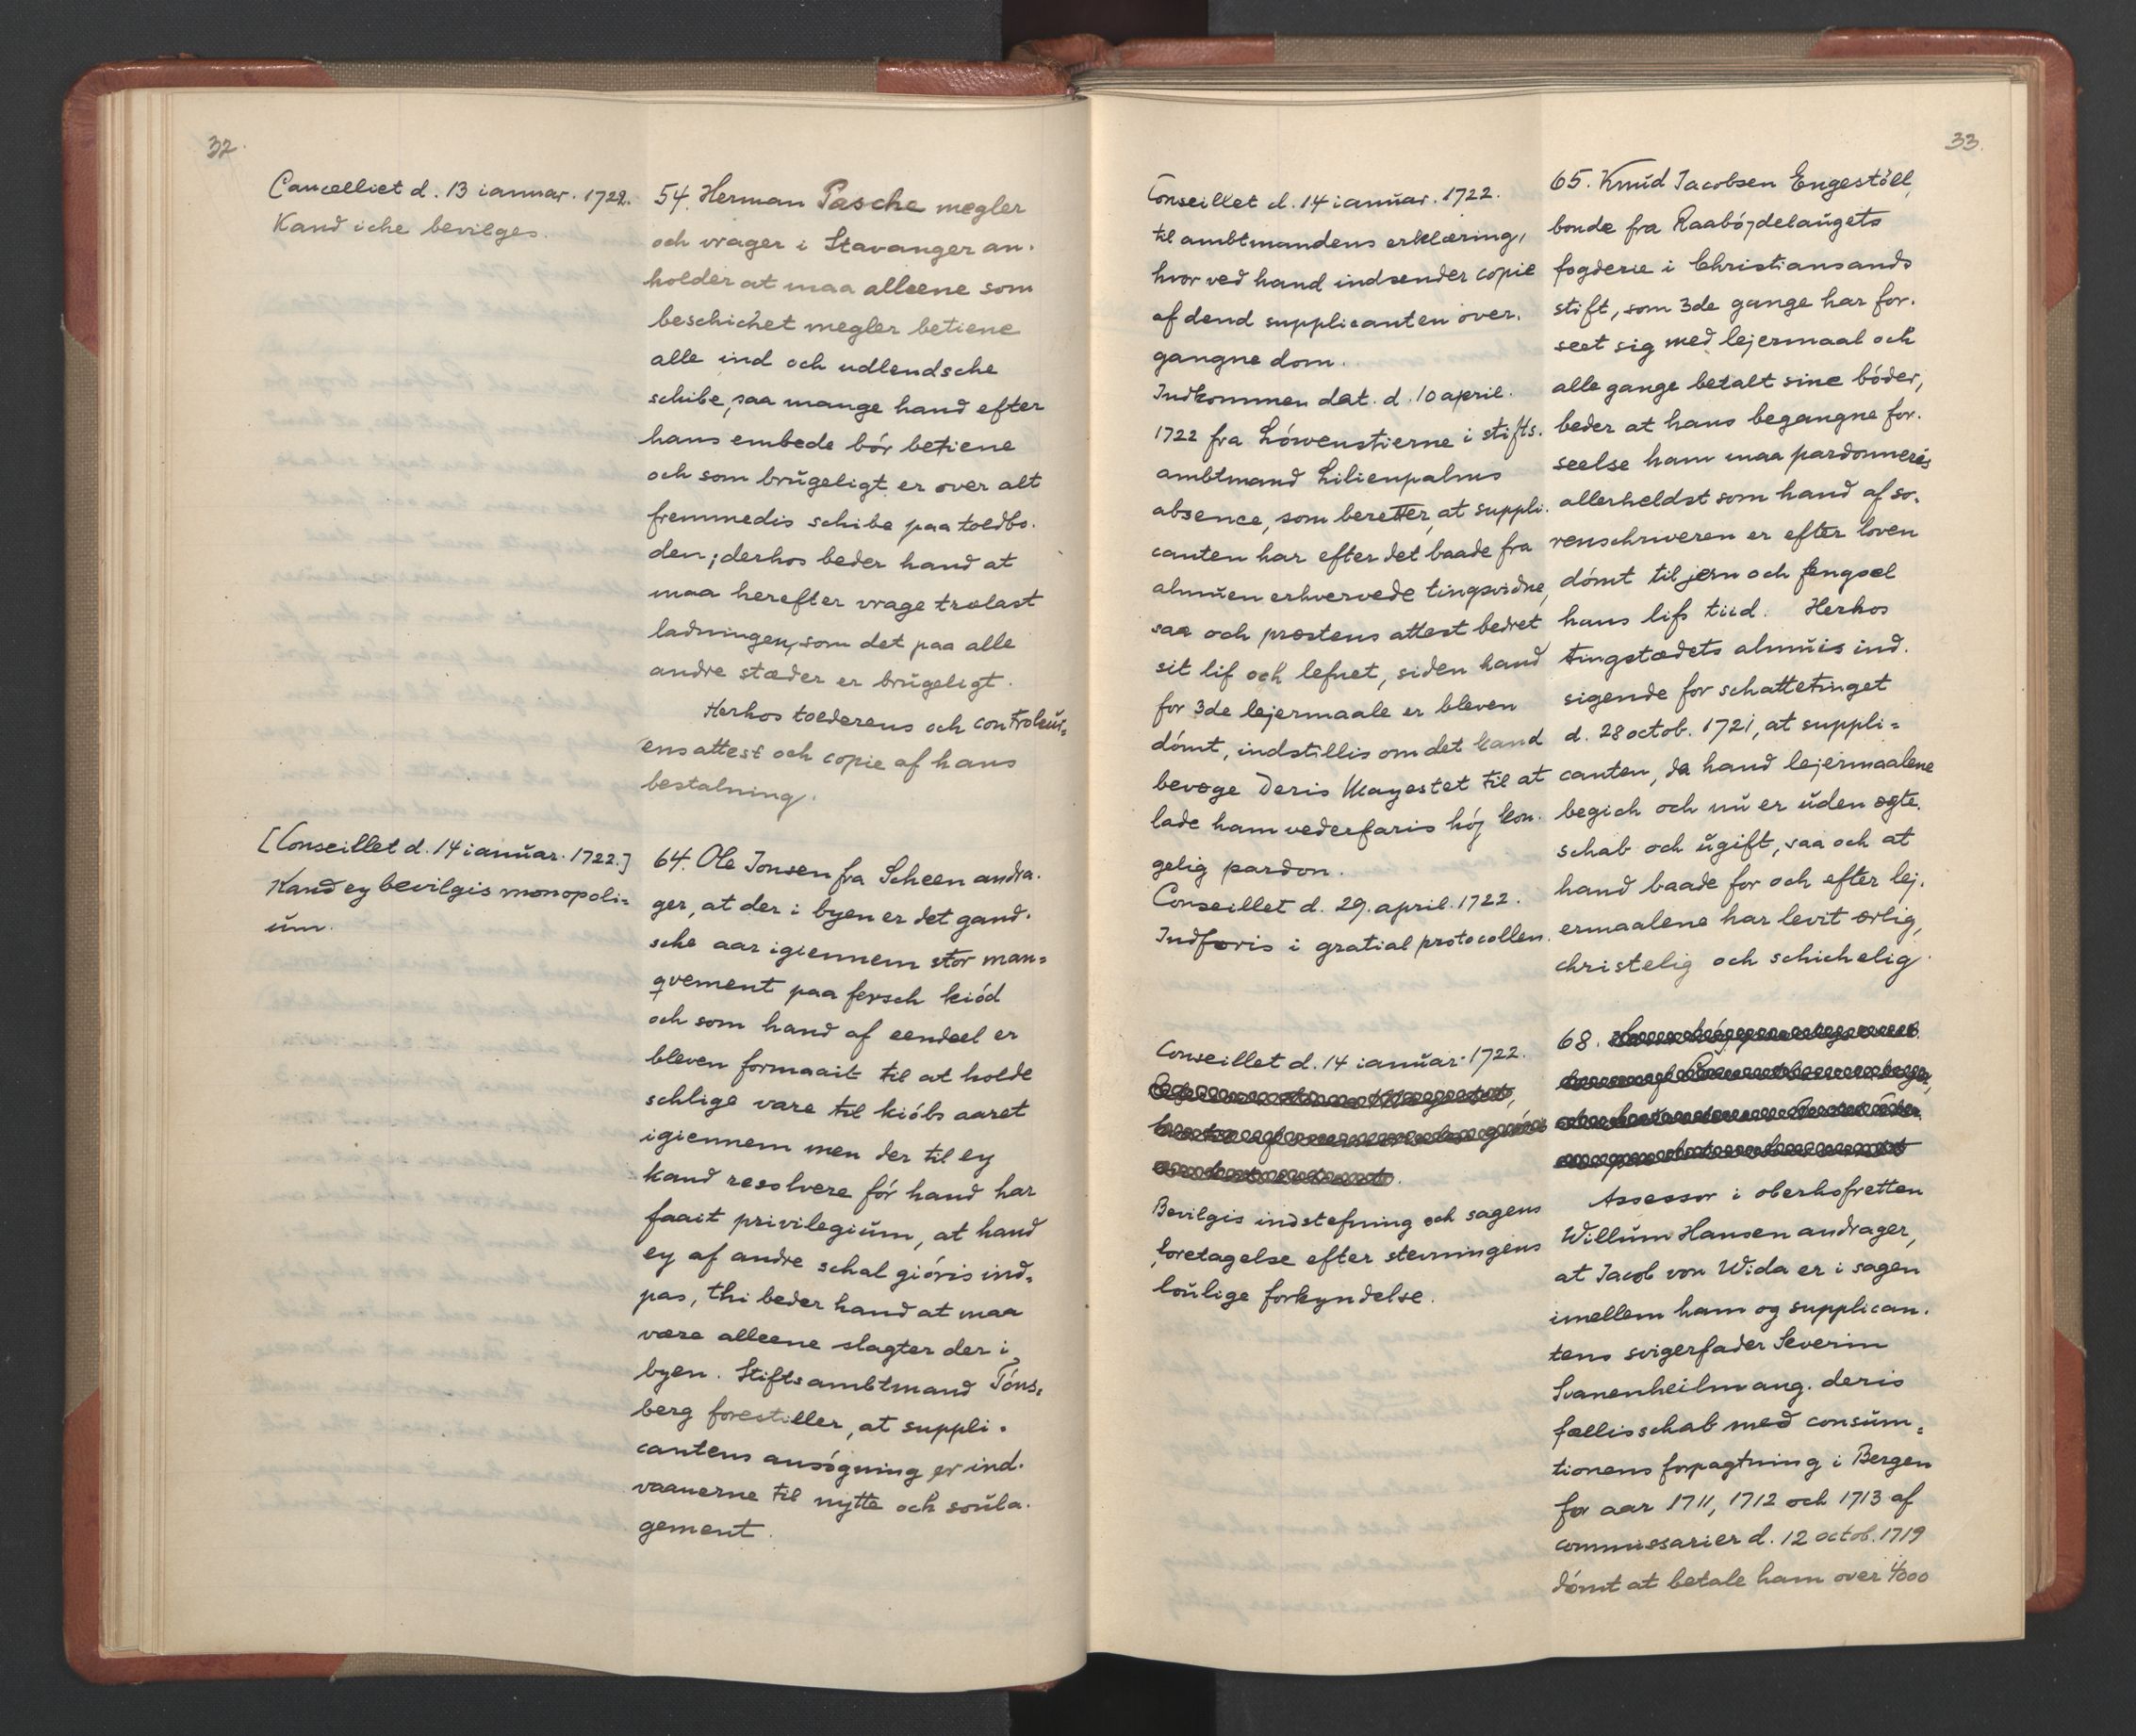 32.
Cancelliet d. 13 ianuar. 1722.
Kand iche bevilges.
54. Herman Pasche megler
och vrager i Stavanger an-
holder at maa alleene som
beschichet megler betiene
alle ind och udlendsche
schibe, saa mange hand efter
hans embede bór betiene
och som brŭgeligt er over alt
fremmedis schibe paa toldbo-
den; derhos beder hand at
maa herefter vrage trælast
ladningen, som det paa alle
andre stæder er brŭgeligt.
Herhos tolderens och controleŭr-
ens attest och copie af hans
bestalning.
[Conseillet d. 14 ianŭar. 1722.]
Kand ey bevilgis monopoli-
ŭm.
64. Ole Jonsen fra Scheen andra-
ger, at der i byen er det gand-
sche aar igiennem stor man-
qvement paa fersch kiód
och som hand af eendeel er
bleven formaait til at holde
schlige vare til kióbs aaret
igiennem men der til ey
kand resolvere fór hand har
faait privilegiŭm, at hand
ey af andre schal gióris ind-
pas, thi beder hand at maa
være alleene slagter der i
byen. Stiftsambtmand Tóns-
berg forestiller, at suppli-
cantens ansógning er ind-
vaanerne til nytte och soŭla-
gement.
33.
Conseillet d. 14 ianŭar. 1722.
til ambtmandens erklæring,
hvor ved hand indsender copie
af dend supplicanten over-
gangne dom.
Indkommen dat. d. 10 april.
1722 fra Lówenstierne i stifts-
ambtmand Lilienpalms
absence, som beretter, at suppli-
canten har efter det baade fra
almŭen erhvervede tingsvidne,
saa och præstens attest bedret
sit lif och lefnet, siden hand
for 3de lejermaale er bleven
dómt, indstillis om det kand
bevæge Deris Mayestet til at
lade ham vederfaris hój kon-
gelig pardon.
Conseillet d. 29. april. 1722.
Indfóris i gratial protocollen.
65. Knŭd Jacobsen Engestóll,
bonde fra Raabójdelaŭgets
fogderie i Christiansands
stift, som 3de gange har for-
seet sig med lejermaal och
alle gange betalt sine bóder,
beder at hans begangne for-
seelse ham maa pardonneris
allerheldst som hand af so-
renschriveren er efter loven
dómt til jern och fengsel
hans lifs tiid. Herhos
tingstædets almŭis ind-
sigende for schattetinget
d. 28 octob. 1721, at suppli-
canten, da hand lejermaalene
begich och nŭ er ŭden ægte-
schab och ŭgift, saa och at
hand baade for och efter lej-
ermaalene har levit ærlig,
christelig och schichelig.
Conseillet d. 14 ianŭar. 1722.
Bevilgis indstefning och sagens
foretagelse efter stevningens
loŭlige forkyndelse.
68.
Assessor i oberhofretten
Willŭm Hansen andrager,
at Jacob von Wida er i sagen
imellem ham og supplican-
tens svigerfader Severin
Svanenheilm ang. deris
fællisschab med consŭm-
tionens forpagtning i Bergen
for aar 1711, 1712 och 1713 af
commissarier d. 12 octob. 1719
dómt at betale ham over 4000